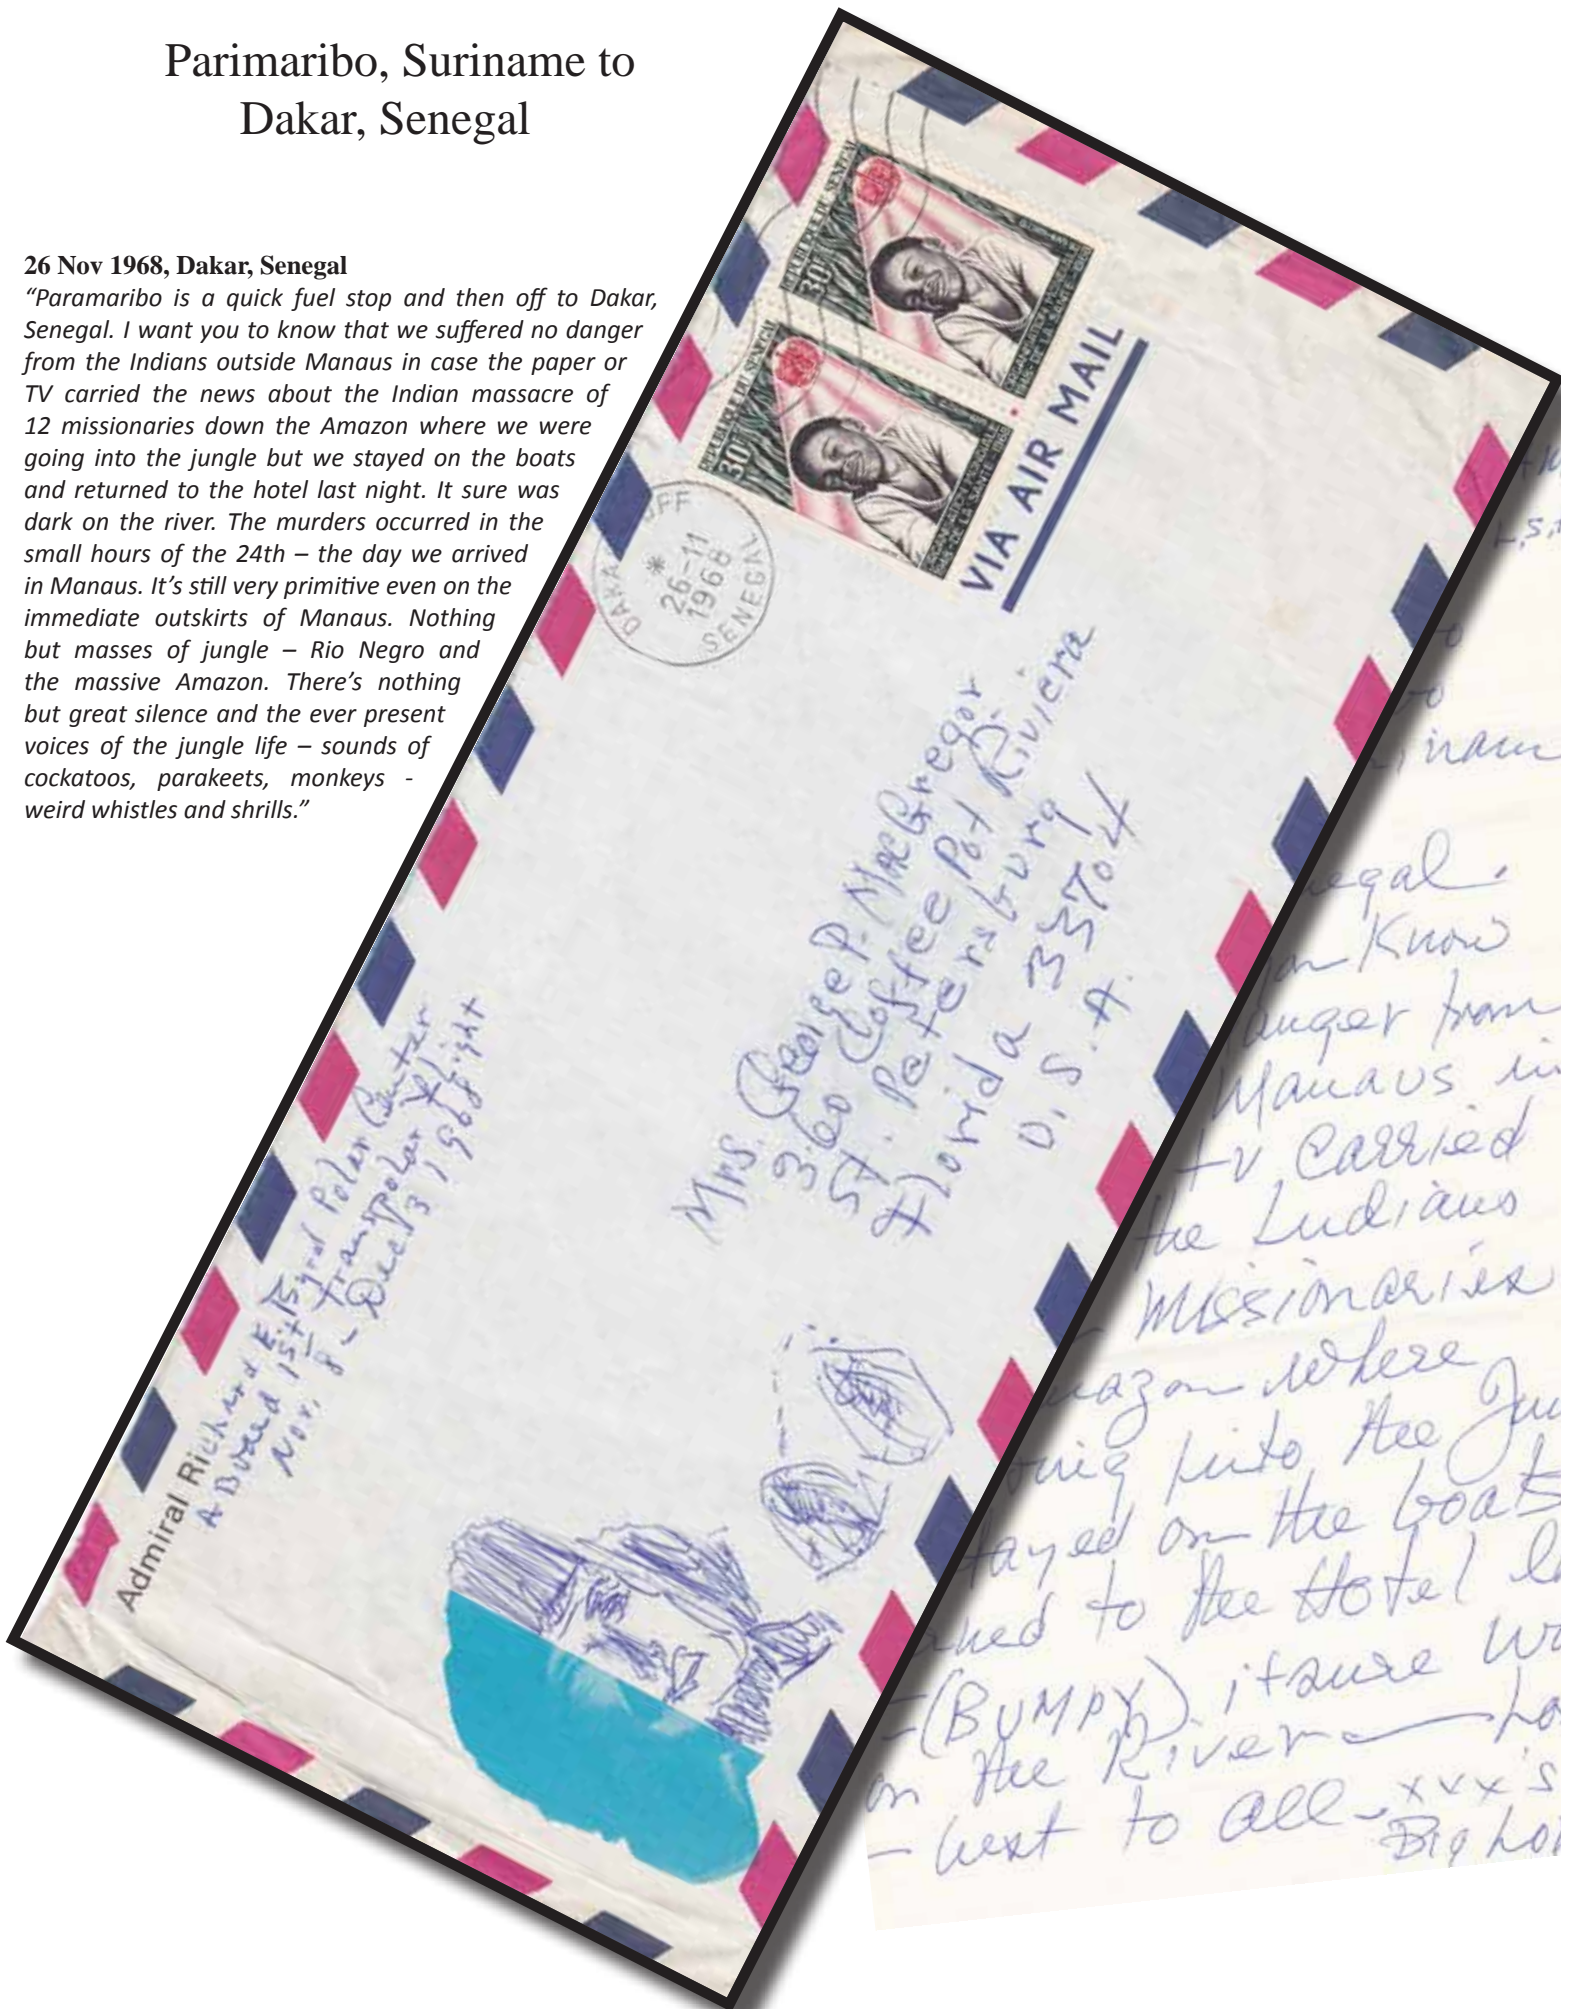 Parimaribo, Suriname to
Dakar, Senegal
26 Nov 1968, Dakar, Senegal
“Paramaribo is a quick fuel stop and then off to Dakar,
Senegal. I want you to know that we suffered no danger
from the Indians outside Manaus in case the paper or
TV carried the news about the Indian massacre of
12 missionaries down the Amazon where we were
going into the jungle but we stayed on the boats
and returned to the hotel last night. It sure was
dark on the river. The murders occurred in the
small hours of the 24th – the day we arrived
in Manaus. It’s still very primitive even on the
immediate outskirts of Manaus. Nothing
but masses of jungle – Rio Negro and
the massive Amazon. There’s nothing
but great silence and the ever present
voices of the jungle life – sounds of
cockatoos, parakeets, monkeys -
weird whistles and shrills.”
REPUBLIQUE DU SENEGAL
30F
REPUBLIQUE DU SENEGAL
30F
VIA AIR MAIL
DAKAR
26-11
1968
SENEGAL
Admiral Richard E. Byrd Polar Center
A Board 1st Transpolar Flight
Nov. 8 - Dec. 3 1968
Mrs. George P. MacGregor
360 Coffee Pot Riviera
St. Petersburg
Florida 33704
U.S.A.
egal.
Know
anger from
Manaus in
TV Carried
the Indians
Missionaries
azon where
into the
tayed on the boats
to the Hotel
(BUMPY) it sure
on the River
best to all - xxx's
Big